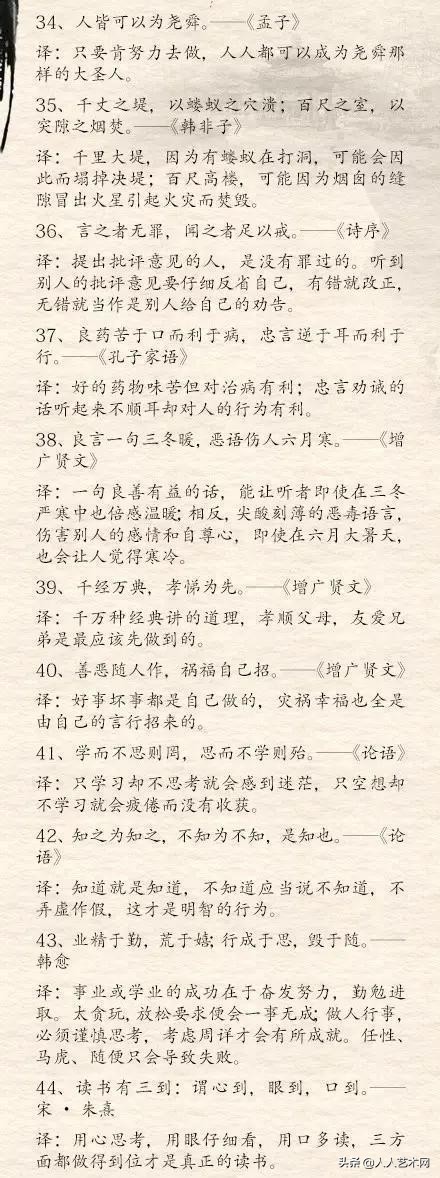 34、人皆可以为尧舜。——《孟子》
译：只要肯努力去做，人人都可以成为尧舜那
样的大圣人。
35、千丈之堤，以蝼蚁之穴溃；百尺之室，以
突隙之烟焚。——《韩非子》
译：千里大堤，因为有蝼蚁在打洞，可能会因
此而塌掉决堤；百尺高楼，可能因为烟囱的缝
隙冒出火星引起火灾而焚毁。
36、言之者无罪，闻之者足以戒。——《诗序》
译：提出批评意见的人，是没有罪过的。听到
别人的批评意见要仔细反省自己，有错就改正，
无错就当作是别人给自己的劝告。
37、良药苦于口而利于病，忠言逆于耳而利于
行。——《孔子家语》
译：好的药物味苦但对治病有利；忠言劝诫的
话听起来不顺耳却对人的行为有利。
38、良言一句三冬暖，恶语伤人六月寒。——《增
广贤文》
译：一句良善有益的话，能让听者即使在三冬
严寒中也倍感温暖；相反，尖酸刻薄的恶毒语言，
伤害别人的感情和自尊心，即使在六月大暑天，
也会让人觉得寒冷。
39、千经万典，孝悌为先。——《增广贤文》
译：千万种经典讲的道理，孝顺父母，友爱兄
弟是最应该先做到的。
40、善恶随人作，祸福自己招。——《增广贤文》
译：好事坏事都是自己做的，灾祸幸福也全是
由自己的言行招来的。
41、学而不思则罔，思而不学则殆。——《论语》
译：只学习却不思考就会感到迷茫，只空想却
不学习就会疲倦而没有收获。
42、知之为知之，不知为不知，是知也。——《论
语》
译：知道就是知道，不知道应当说不知道，不
弄虚作假，这才是明智的行为。
43、业精于勤，荒于嬉；行成于思，毁于随。——
韩愈
译：事业或学业的成功在于奋发努力，勤勉进
取。太贪玩，放松要求便会一事无成；做人行事，
必须谨慎思考，考虑周详才会有所成就。任性、
马虎、随便只会导致失败。
44、读书有三到：谓心到，眼到，口到。——
宋 · 朱熹
译：用心思考，用眼仔细看，用口多读，三方
面都做得到位才是真正的读书。
头条 @人人艺术网